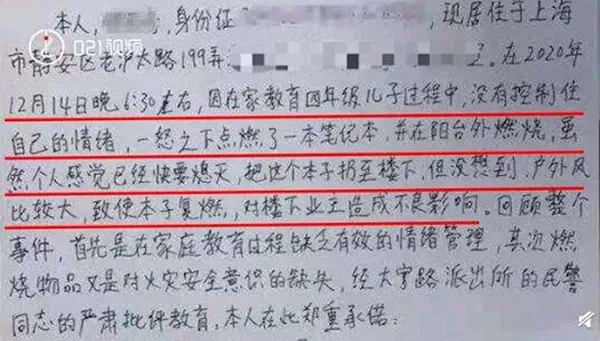 021视频
本人, ,身份证 ,现居住于上海
市静安区老沪太路199弄 。在2020年
12月14日晚6:30左右,因在家教育四年级儿子过程中,没有控制住
自己的情绪,一怒之下点燃了一本笔记本,并在阳台外燃烧,虽
然个人感觉已经快要熄灭,把这个本子扔至楼下,但没想到,户外风
比较大,致使本子复燃,对楼下业主造成不良影响。回顾整个
事件,首先是在家庭教育过程缺乏有效的情绪管理,其次燃
烧物品又是对火灾安全意识的缺失,经大宁路派出所的民警
同志的严肃批评教育,本人在此郑重承诺: